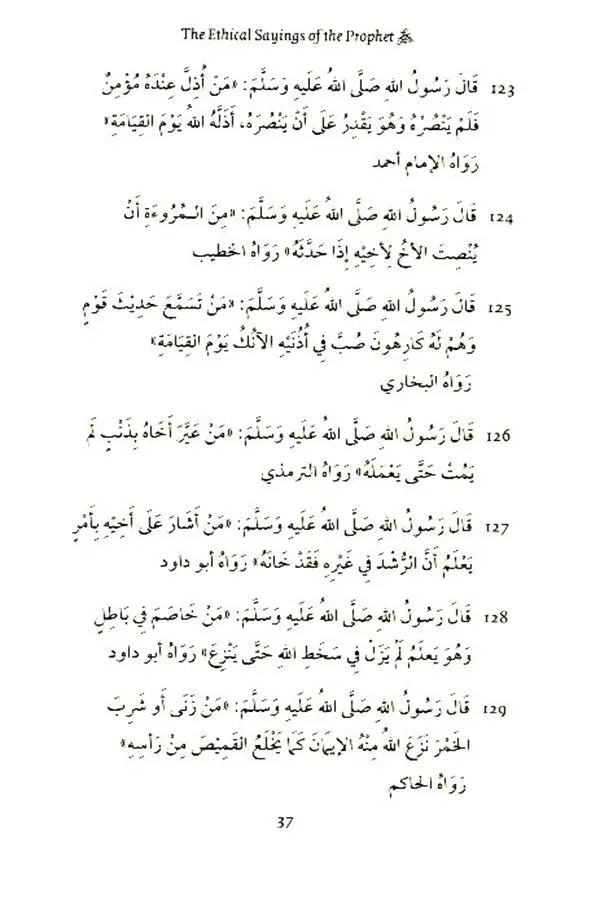 The Ethical Sayings of the Prophet ﷺ
123 قَالَ رَسُولُ اللهِ صَلَّى اللهُ عَلَيهِ وَسَلَّمَ: «مَنْ أُذِلَّ عِنْدَهُ مُؤْمِنٌ
فَلَمْ يَنْصُرْهُ وَهُوَ يَقْدِرُ عَلَى أَنْ يَنْصُرَهُ، أَذَلَّهُ اللهُ يَوْمَ القِيَامَةِ»
رَوَاهُ الإمام أحمد
124 قَالَ رَسُولُ اللهِ صَلَّى اللهُ عَلَيهِ وَسَلَّمَ: «مِنَ الـمُرُوءَةِ أَنْ
يُنْصِتَ الأَخُ لِأَخِيْهِ إِذَا حَدَّثَهُ» رَوَاهُ الخطيب
125 قَالَ رَسُولُ اللهِ صَلَّى اللهُ عَلَيهِ وَسَلَّمَ: «مَنْ تَسَمَّعَ حَدِيْثَ قَوْمٍ
وَهُمْ لَهُ كَارِهُونَ صُبَّ فِي أُذُنَيْهِ الآنُكُ يَوْمَ القِيَامَةِ»
رَوَاهُ البخاري
126 قَالَ رَسُولُ اللهِ صَلَّى اللهُ عَلَيهِ وَسَلَّمَ: «مَنْ عَيَّرَ أَخَاهُ بِذَنْبٍ لَم
يَمُتْ حَتَّى يَعْمَلَهُ» رَوَاهُ الترمذي
127 قَالَ رَسُولُ اللهِ صَلَّى اللهُ عَلَيهِ وَسَلَّمَ: «مَنْ أَشَارَ عَلَى أَخِيْهِ بِأَمْرٍ
يَعْلَمُ أَنَّ الرُّشْدَ فِي غَيْرِهِ فَقَدْ خَانَهُ» رَوَاهُ أبو داود
128 قَالَ رَسُولُ اللهِ صَلَّى اللهُ عَلَيهِ وَسَلَّمَ: «مَنْ خَاصَمَ فِي بَاطِلٍ
وَهُوَ يَعلَمُ لَمْ يَزَلْ فِي سَخَطِ اللهِ حَتَّى يَنْزِعَ» رَوَاهُ أبو داود
129 قَالَ رَسُولُ اللهِ صَلَّى اللهُ عَلَيهِ وَسَلَّمَ: «مَنْ زَنَى أَو شَرِبَ
الخَمْرَ نَزَعَ اللهُ مِنْهُ الإِيمَانَ كَمَا يَخْلَعُ القَمِيْصَ مِنْ رَأسِهِ»
رَوَاهُ الحاكم
37